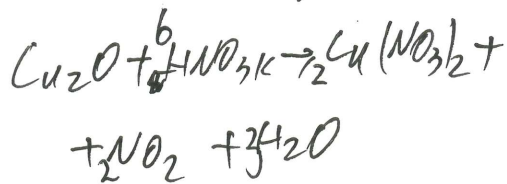 Cu₂O + 6HNO₃K → 2Cu(NO₃)₂ +
+ 2NO₂ + 3H₂O